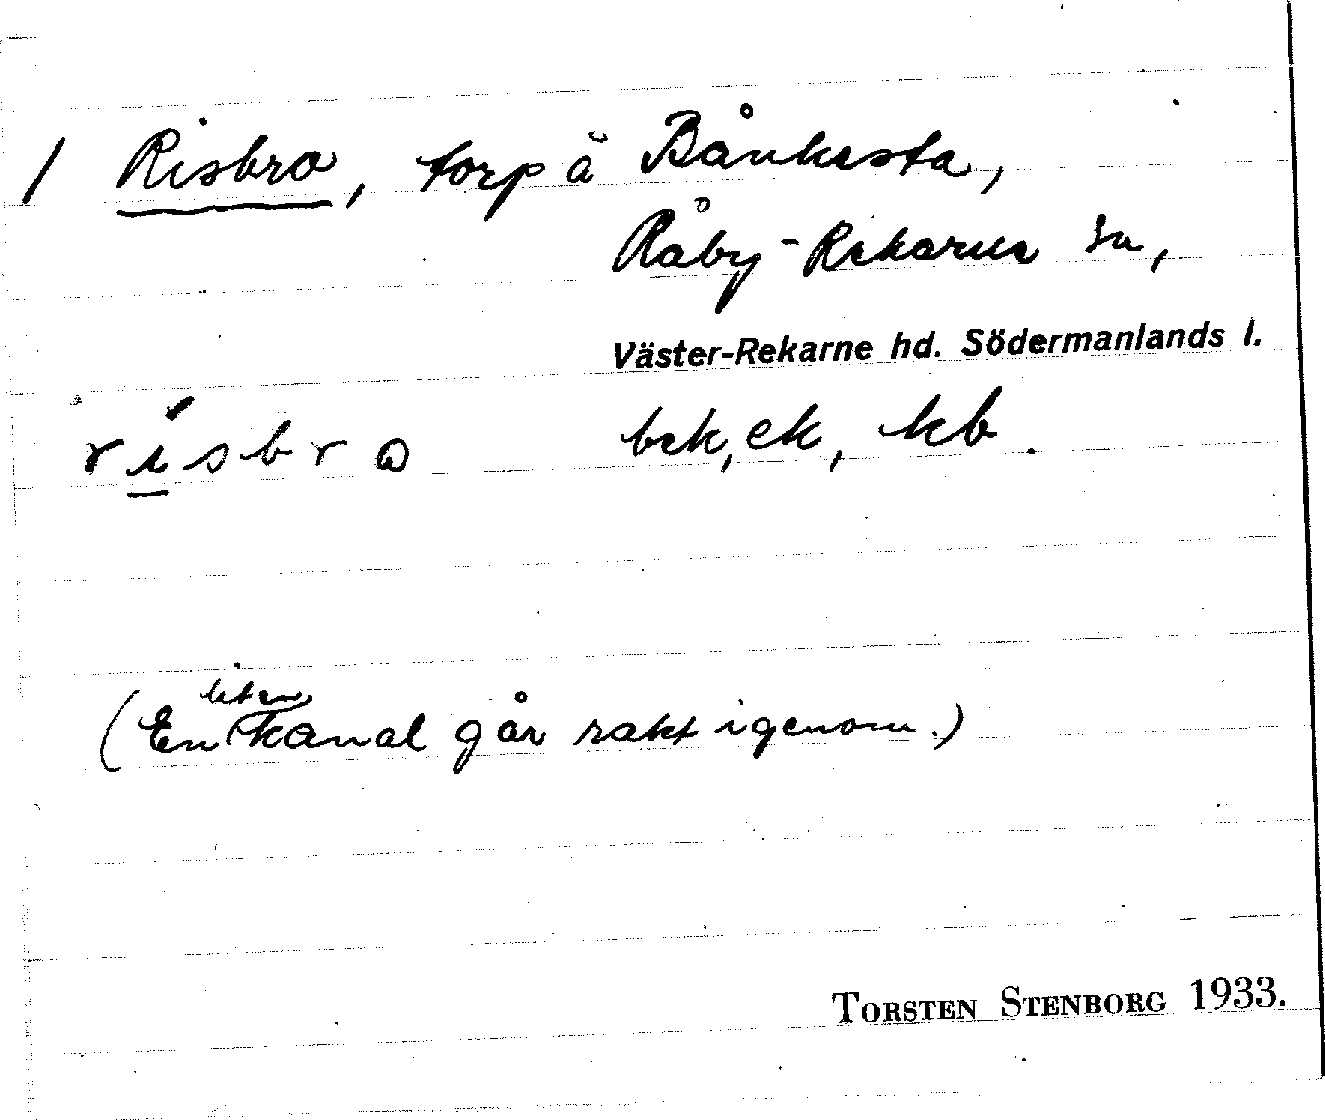 1 Risbro, torp å Bånkesta,
Råby-Rekarne sn,
Väster-Rekarne hd. Södermanlands l.
rísbro bek, ek, kb.
(En liten kanal går rakt igenom.)
TORSTEN STENBORG 1933.